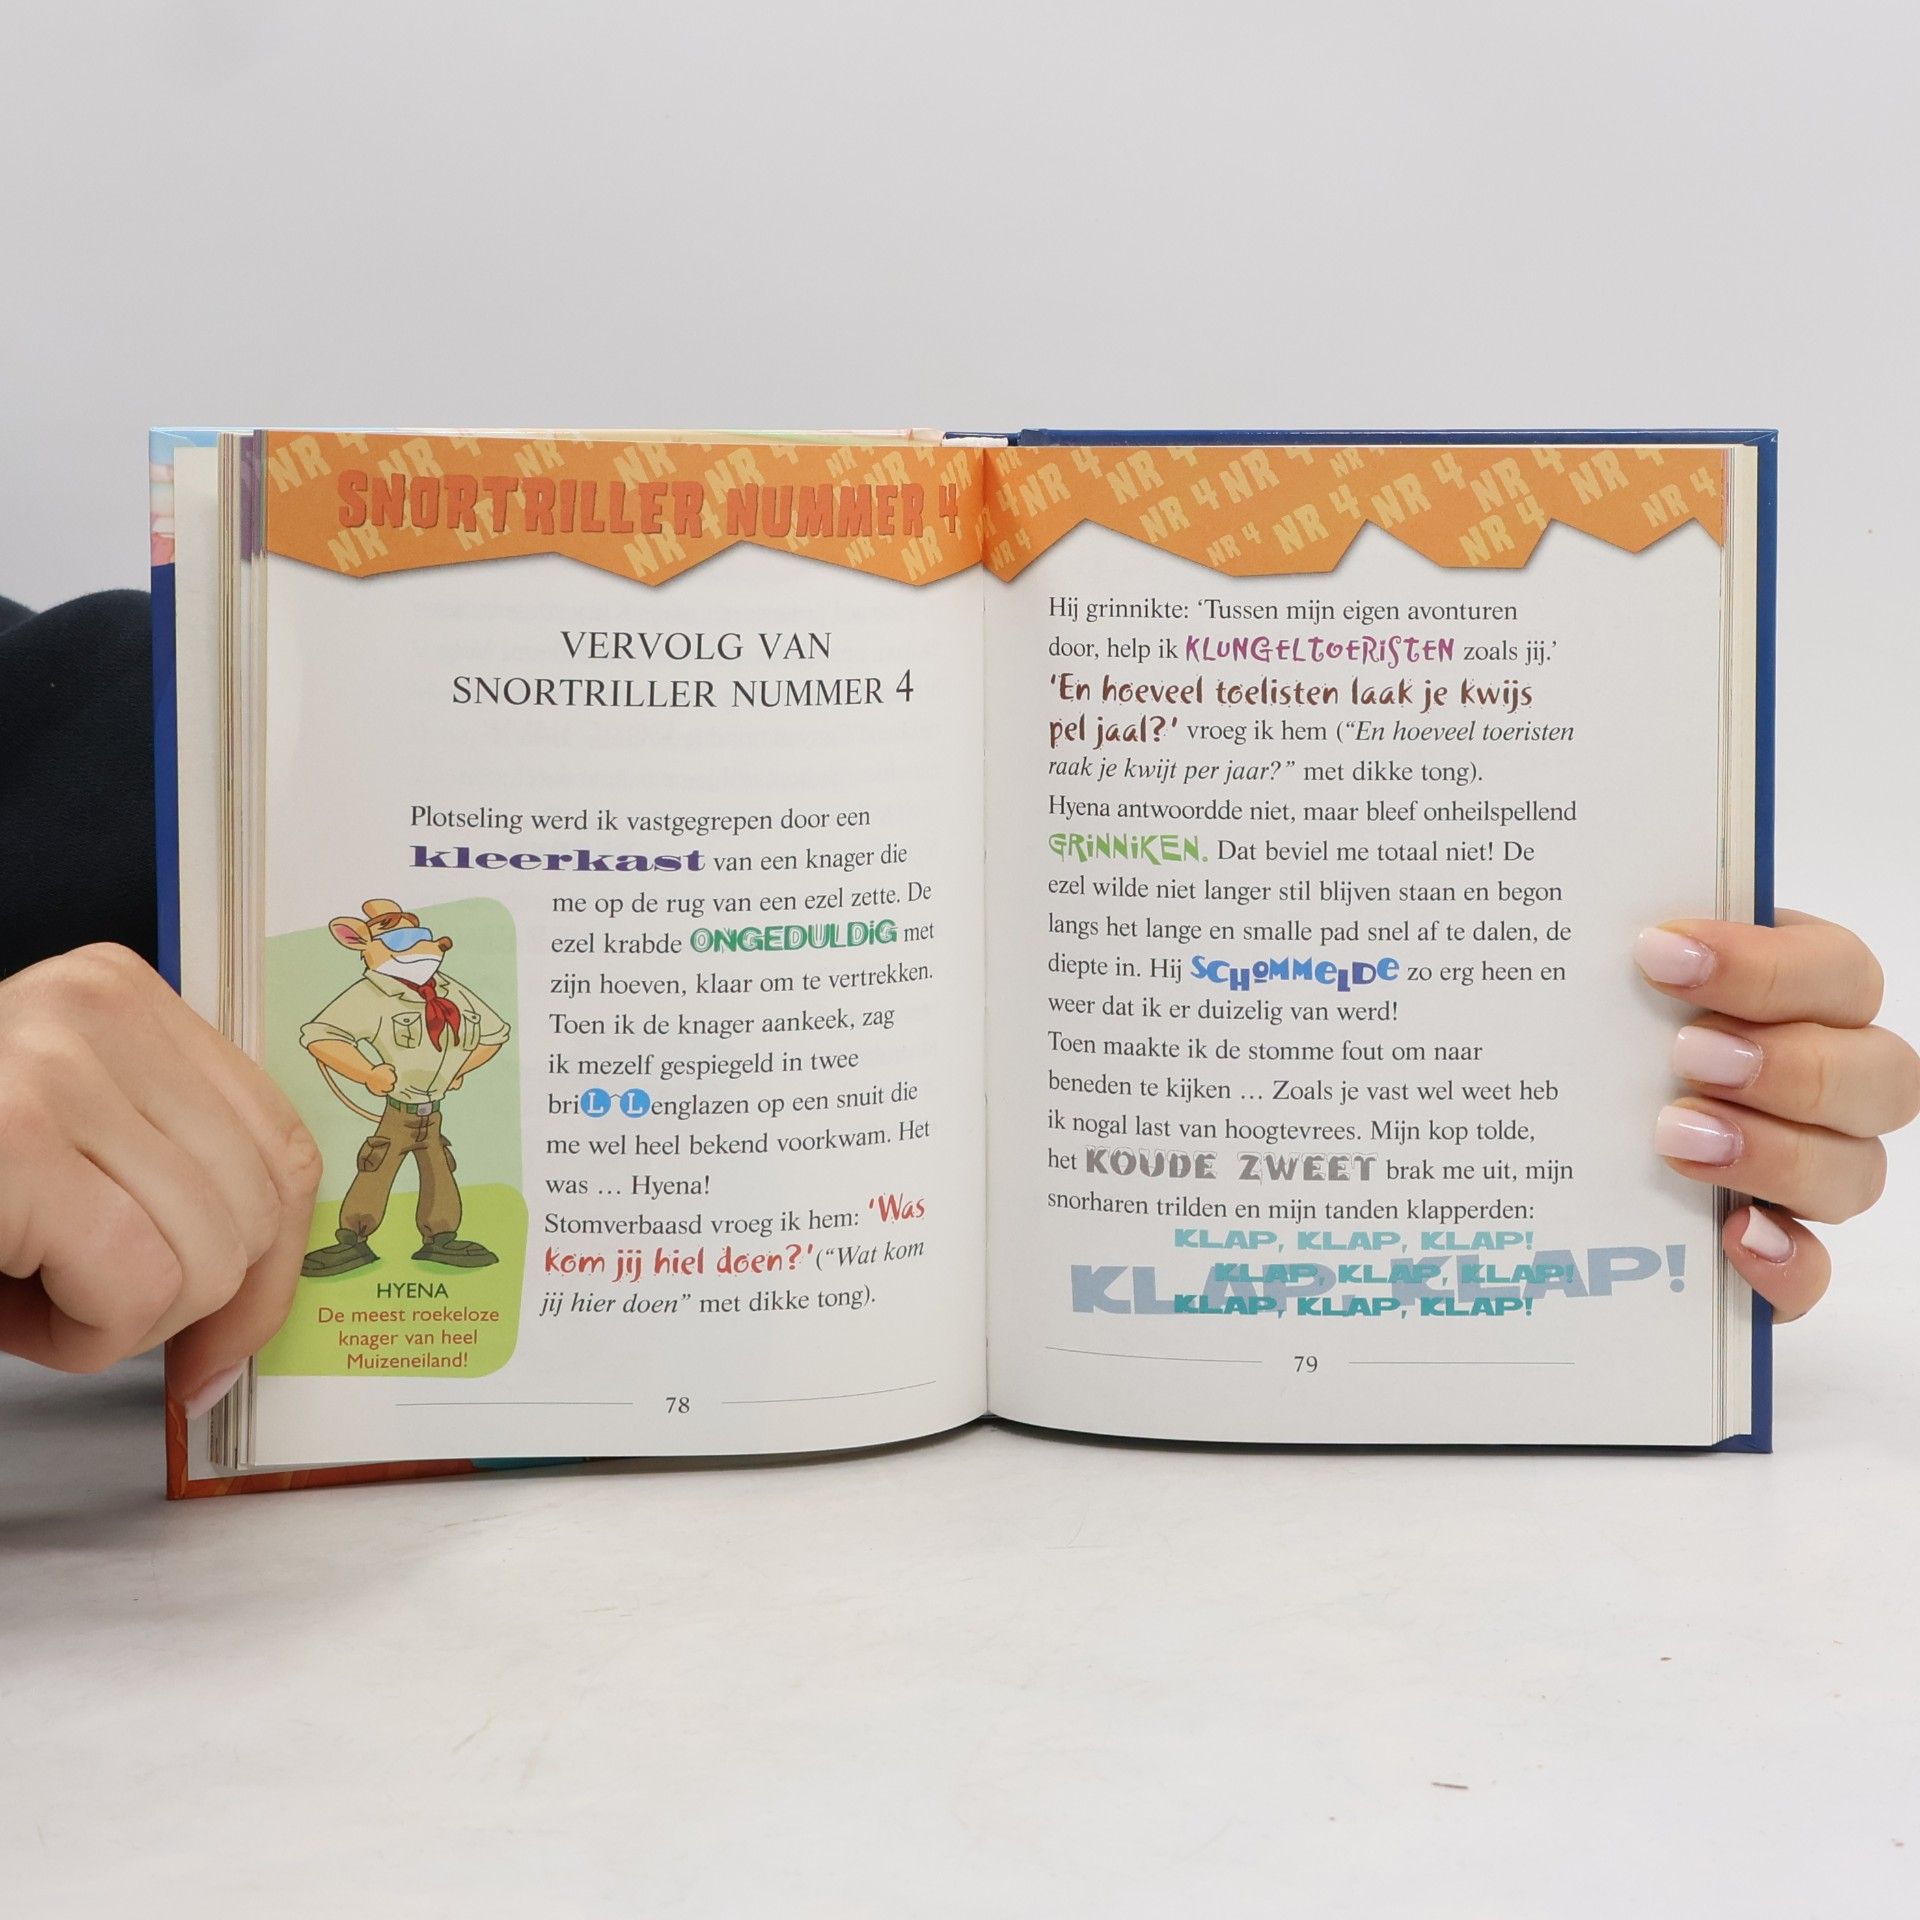 SNORTRILLER NUMMER 4
VERVOLG VAN
SNORTRILLER NUMMER 4
Plotseling werd ik vastgegrepen door een
kleerkast van een knager die
me op de rug van een ezel zette. De
ezel krabde ONGEDULDIG met
zijn hoeven, klaar om te vertrekken.
Toen ik de knager aankeek, zag
ik mezelf gespiegeld in twee
briLLenglazen op een snuit die
me wel heel bekend voorkwam. Het
was … Hyena!
Stomverbaasd vroeg ik hem: 'Was
kom jij hiel doen?' (“Wat kom
jij hier doen” met dikke tong).
HYENA
De meest roekeloze
knager van heel
Muizeneiland!
78
NR 4 NR 4 NR 4 NR 4 NR 4 NR 4
Hij grinnikte: ‘Tussen mijn eigen avonturen
door, help ik KLUNGELTOERISTEN zoals jij.’
'En hoeveel toelisten laak je kwijs
pel jaal?' vroeg ik hem (“En hoeveel toeristen
raak je kwijt per jaar?” met dikke tong).
Hyena antwoordde niet, maar bleef onheilspellend
GRINNIKEN. Dat beviel me totaal niet! De
ezel wilde niet langer stil blijven staan en begon
langs het lange en smalle pad snel af te dalen, de
diepte in. Hij SCHOMMELDE zo erg heen en
weer dat ik er duizelig van werd!
Toen maakte ik de stomme fout om naar
beneden te kijken … Zoals je vast wel weet heb
ik nogal last van hoogtevrees. Mijn kop tolde,
het KOUDE ZWEET brak me uit, mijn
snorharen trilden en mijn tanden klapperden:
KLAP, KLAP, KLAP!
KLAP, KLAP!
KLAP, KLAP, KLAP!
KLAP, KLAP, KLAP!
79